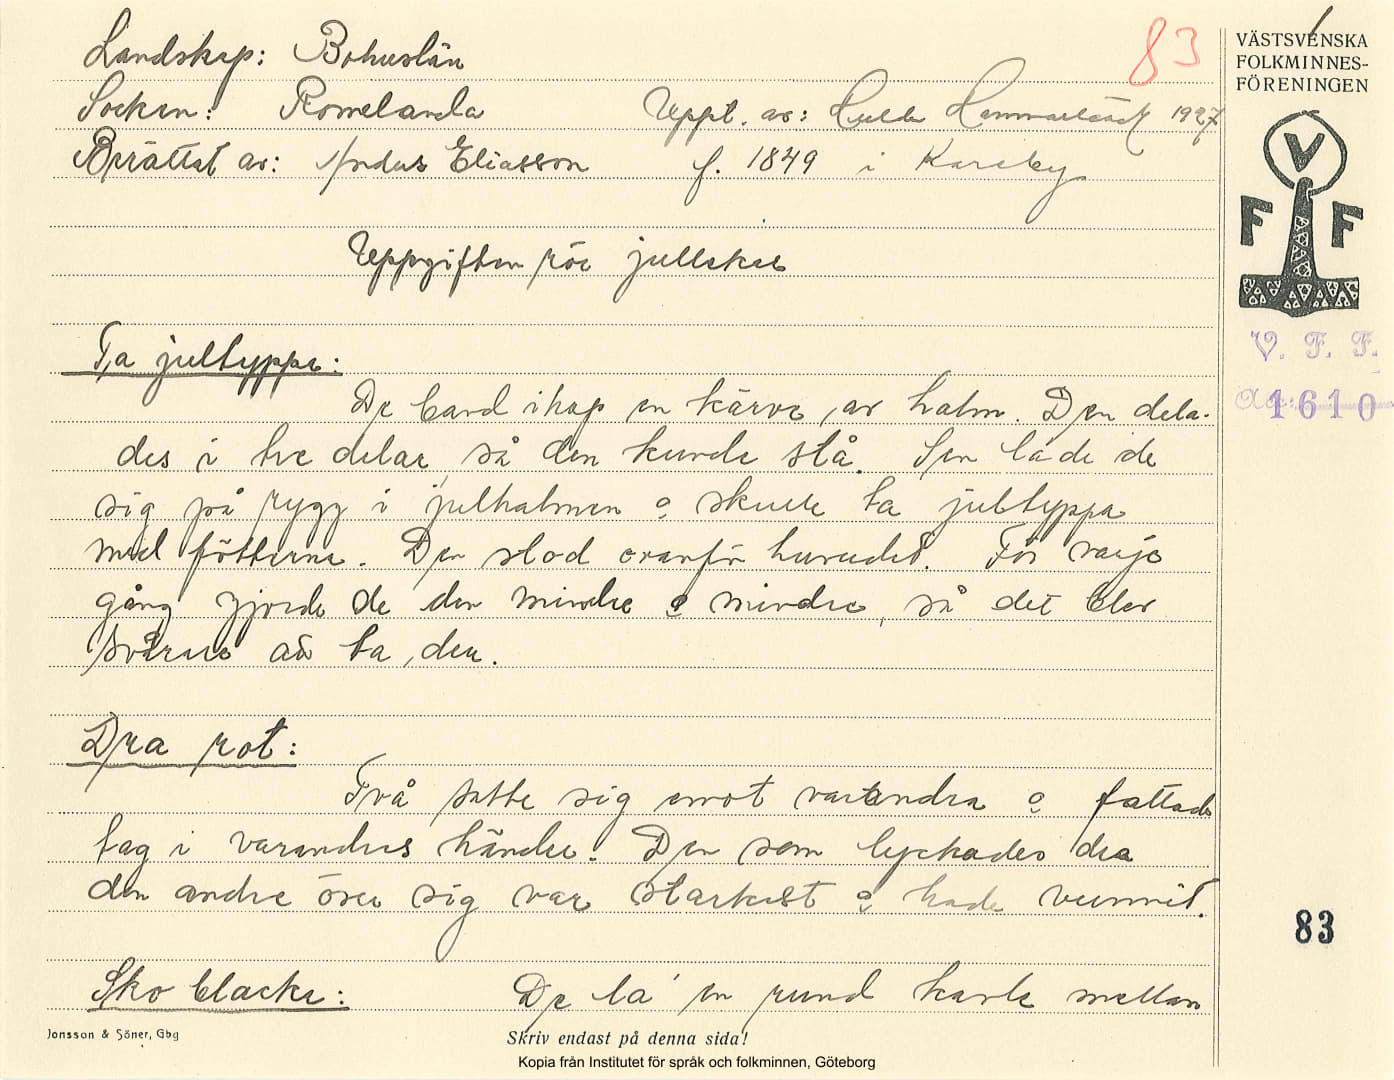 Landskap: Bohuslän
83
VÄSTSVENSKA
FOLKMINNES-
FÖRENINGEN
Socken: Romelanda Uppt. av: Hulda Hammarbäck 1927
Berättat av: Andas Eliasson f. 1849 i Kareby
V
F F
Uppgiften rör jullekar
V. F. F.
Acc: 1610
Ta jultuppa:
De band ihop en kärve av halm. Den dela-
des i tre delar, så den kunde stå. Sen lade de
sig på rygg i julhalmen o skulle ta jultuppa
med fötterna. Den stod ovanför huvudet. För varje
gång gjorde de den mindre o mindre, så det blev
svårare att ta den.
Dra rot:
Två satte sig emot varandra o fattade
tag i varandras händer. Den som lyckades dra
den andre över sig var starkast o hade vunnit.
83
Sko blacka: De la' en rund kavle mellan
Jonsson & Söner, Gbg
Skriv endast på denna sida!
Kopia från Institutet för språk och folkminnen, Göteborg